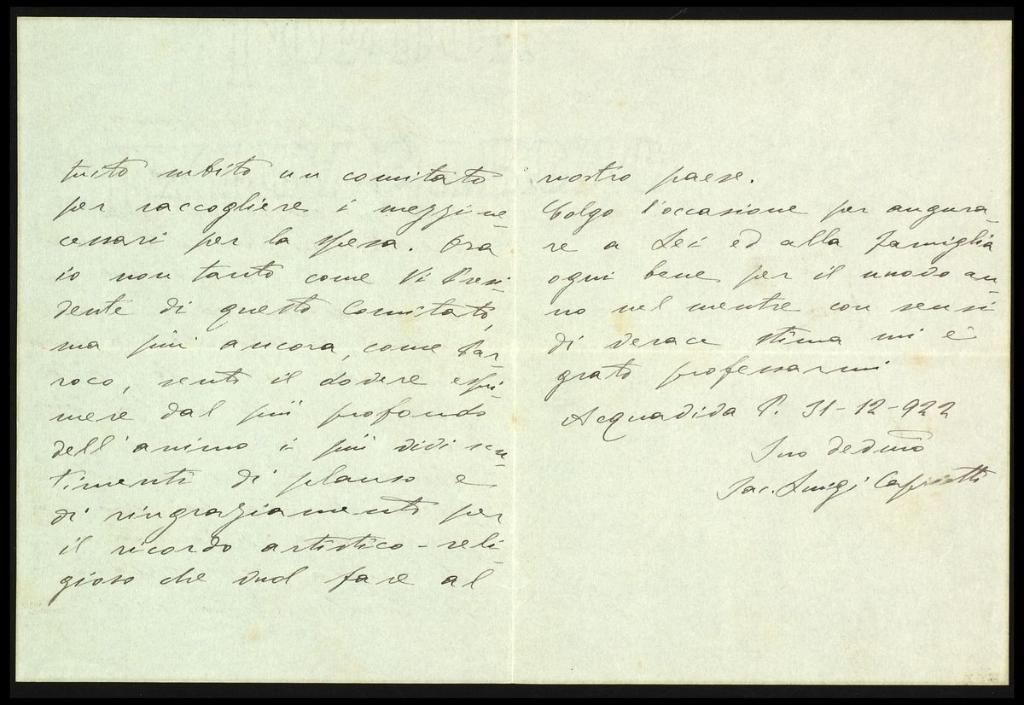 tuito subito un comitato
per raccogliere i mezzi ne-
cessari per la spesa. Ora
io non tanto come Vi Presi-
dente di questo Comitato,
ma più ancora, come Par-
roco, sento il dovere espri-
mere dal più profondo
dell'animo i più vivi sen-
timenti di plauso e
di ringraziamento per
il ricordo artistico-reli-
gioso che vuol fare al
nostro paese.
Colgo l'occasione per augura-
re a Lei ed alla famiglia
ogni bene per il nuovo an-
no nel mentre con sensi
di verace stima mi è
grato professarmi
Acquaviva P. 31-12-922
Suo devmo
Sac. Luigi